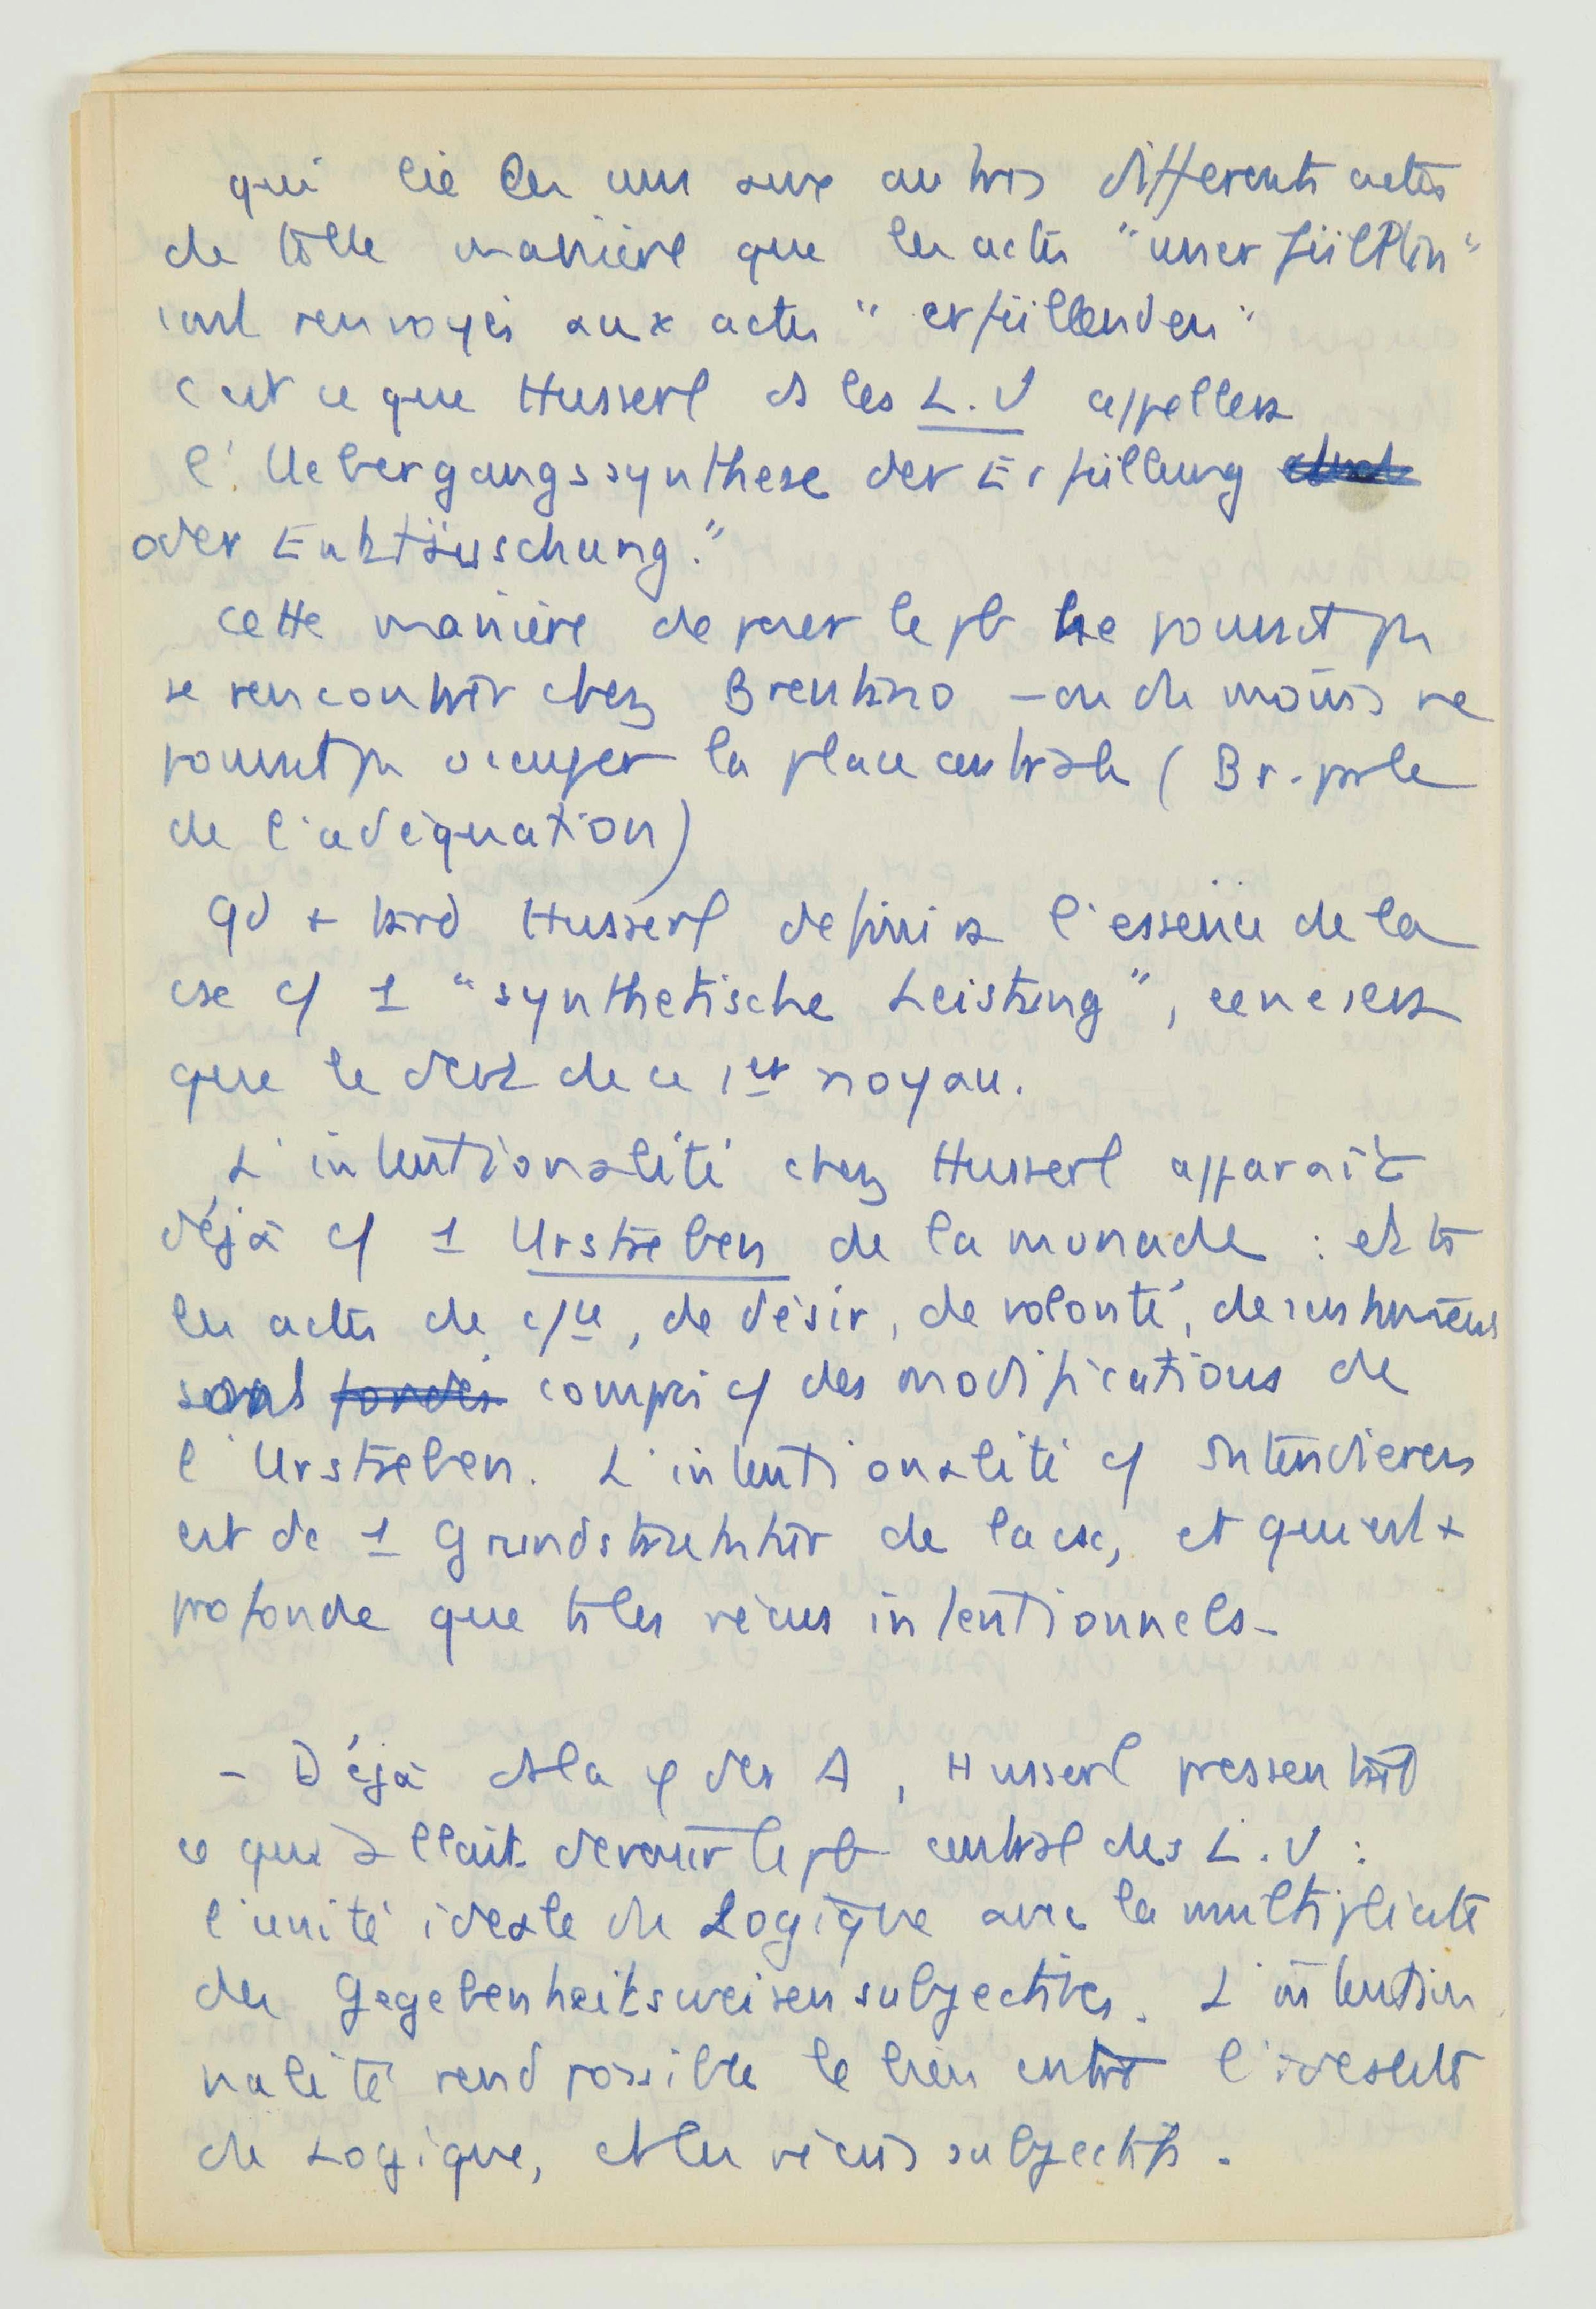 qui lie les uns aux autres différents actes
de telle manière que les actes "unerfüllten"
sont renvoyés aux actes "erfüllenden"
c'est ce que Husserl ds les L.U appellera
l'Uebergangssynthese der Erfüllung
oder Enttäuschung."
cette manière de poser le pb ne pouvait pas
se rencontrer chez Brentano – ou du moins ne
pouvait pas occuper la place centrale (Br. parle
de l'adéquation)
Qd + tard Husserl définira l'essence de la
cse c/ 1 "synthetische Leistung", ce ne sera
que le devt de ce 1er noyau.
L'intentionalité chez Husserl apparaît
déjà c/ 1 Urstreben de la monade : et ts
les actes de c/ce, de désir, de volonté, de
sont fondés compris c/ des modifications de
l'Urstreben. L'intentionalité c/ Intendieren
est dc 1 Grundstruktur de la cse, et qui est +
profonde que ts les vécus intentionnels –
– Déjà ds la φ der A, Husserl pressentait
ce qui allait devenir le pb central des L.U :
l'unité idéale du Logique avec la multiplicité
des Gegebenheitsweisen subjectives. L'intention
nalité rend possible le lien entre l'idéalité
du Logique, et les vécus subjectifs.